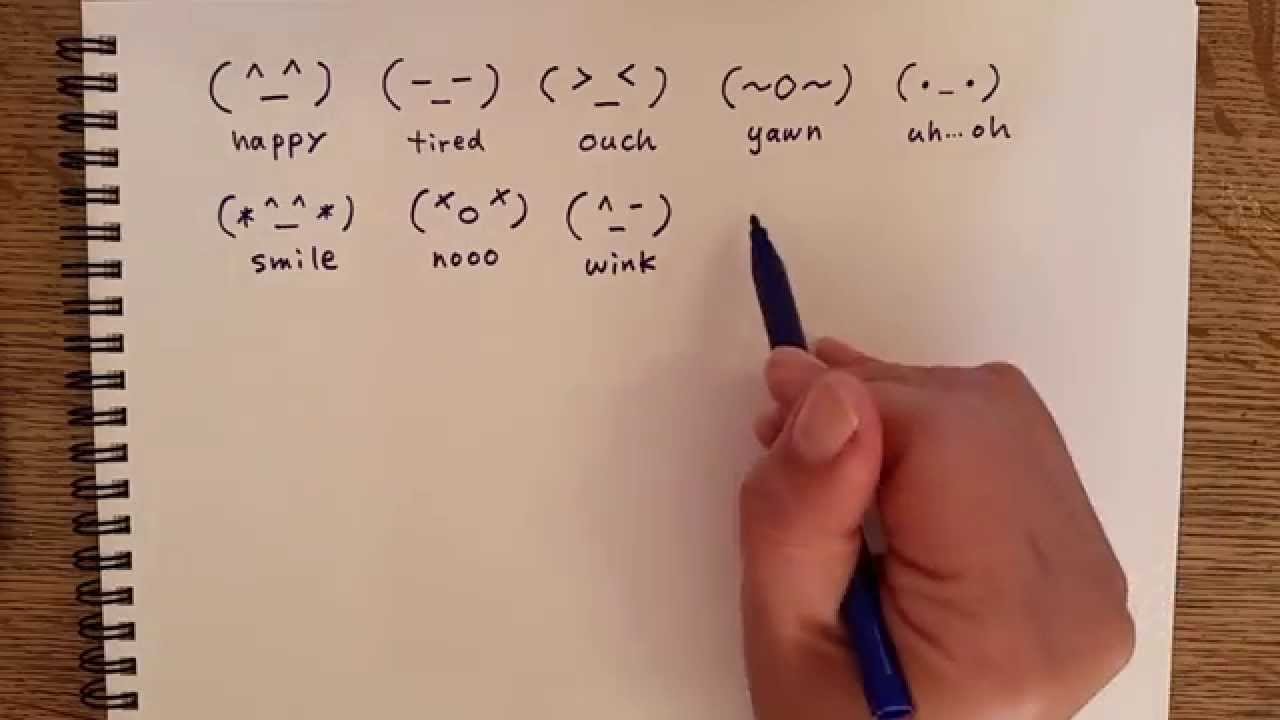 (^_^) (-_-) (>_<) (~o~) (•_•)
happy tired ouch yawn uh...oh
(*^_^*) (×o×) (^_-)
smile nooo wink